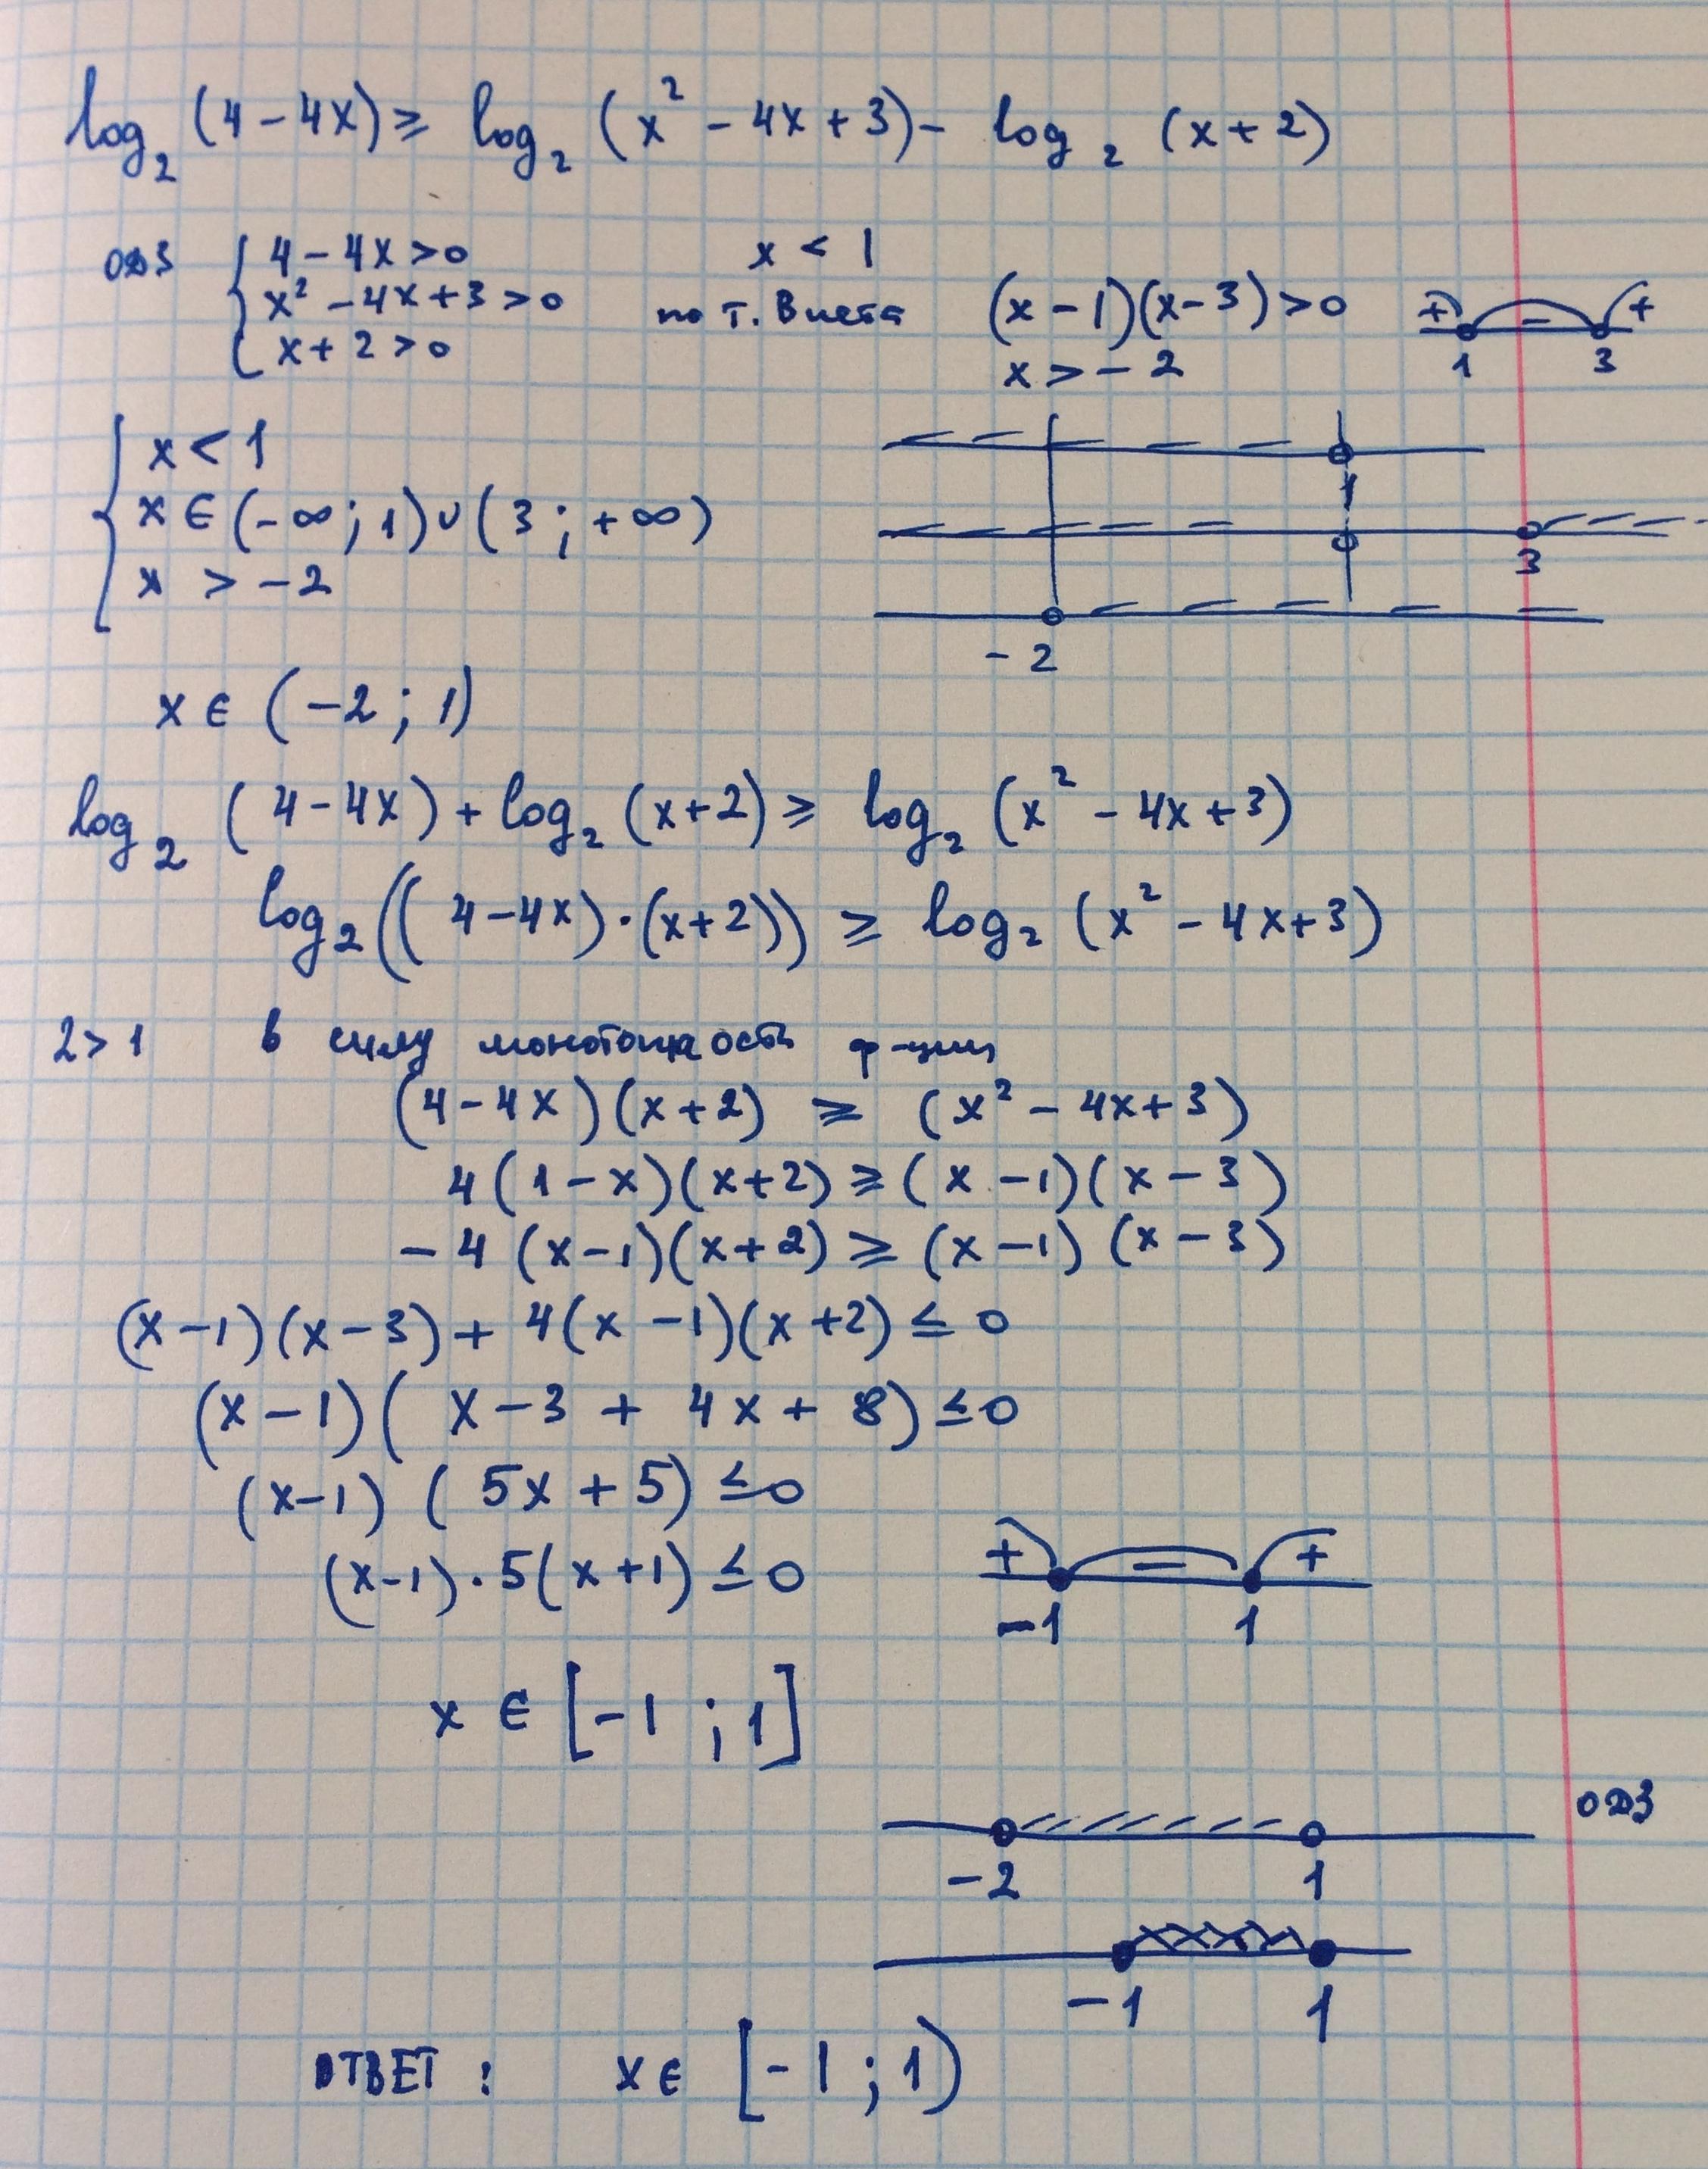 log₂ (4 - 4x) ≥ log₂ (x² - 4x + 3) - log₂ (x + 2)
ОДЗ { 4 - 4x > 0 x < 1
x² - 4x + 3 > 0 по т. Виета (x - 1)(x - 3) > 0 + - +
x + 2 > 0 x > - 2 1 3
{ x < 1
1
x ∈ (-∞; 1) ∪ (3; +∞)
3
x > -2
-2
x ∈ (-2; 1)
log₂ (4 - 4x) + log₂ (x + 2) ≥ log₂ (x² - 4x + 3)
log₂ ((4 - 4x) · (x + 2)) ≥ log₂ (x² - 4x + 3)
2 > 1 в силу монотонность ф-ции
(4 - 4x)(x + 2) ≥ (x² - 4x + 3)
4(1 - x)(x + 2) ≥ (x - 1)(x - 3)
- 4(x - 1)(x + 2) ≥ (x - 1)(x - 3)
(x - 1)(x - 3) + 4(x - 1)(x + 2) ≤ 0
(x - 1)(x - 3 + 4x + 8) ≤ 0
(x - 1)(5x + 5) ≤ 0
(x - 1) · 5(x + 1) ≤ 0 + - +
-1 1
x ∈ [-1; 1]
ОДЗ
-2 1
-1 1
ОТВЕТ: x ∈ [-1; 1)